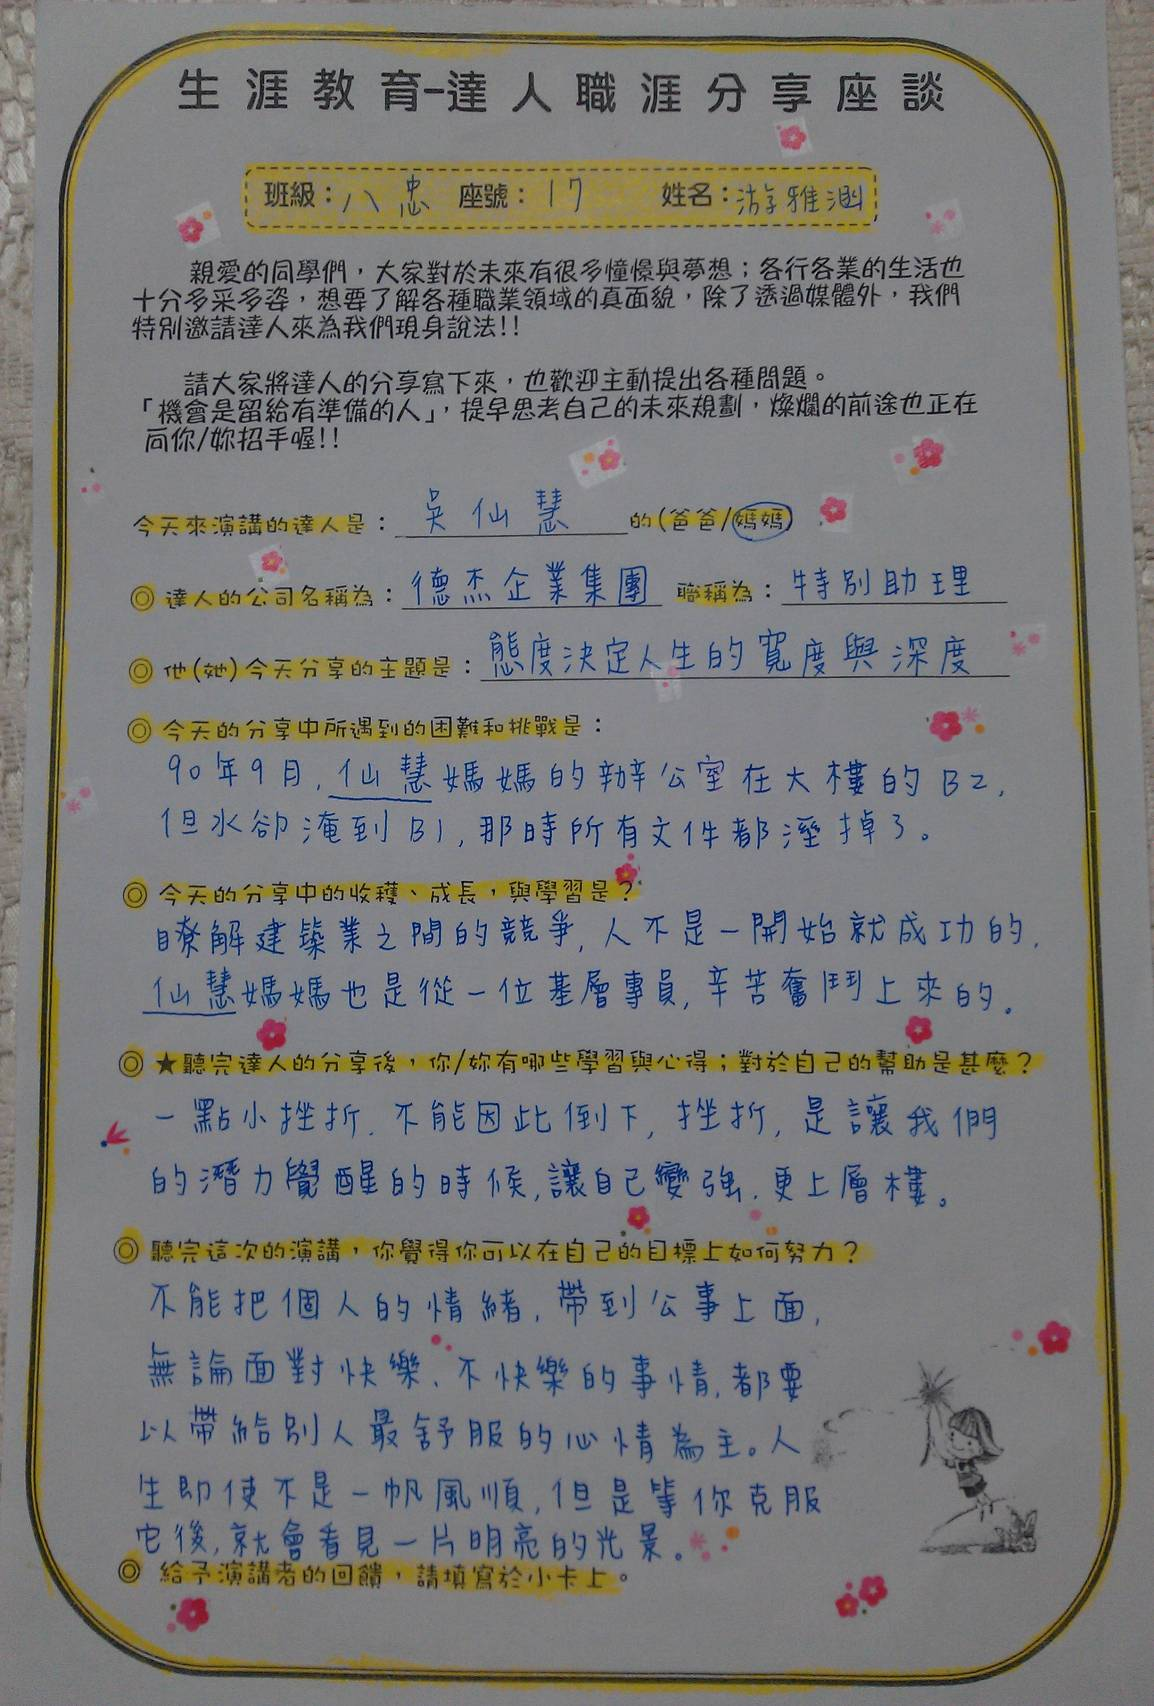 生涯教育-達人職涯分享座談
班級：八忠 座號：17 姓名：游雅涵
親愛的同學們，大家對於未來有很多憧憬與夢想；各行各業的生活也
十分多采多姿，想要了解各種職業領域的真面貌，除了透過媒體外，我們
特別邀請達人來為我們現身說法!!
請大家將達人的分享寫下來，也歡迎主動提出各種問題。
「機會是留給有準備的人」，提早思考自己的未來規劃，燦爛的前途也正在
向你/妳招手喔!!
今天來演講的達人是：吳仙慧的(爸爸/媽媽)
◎ 達人的公司名稱為：德杰企業集團 職稱為：特別助理
◎ 他(她)今天分享的主題是：態度決定人生的寬度與深度
◎ 今天的分享中所遇到的困難和挑戰是：
90年9月，仙慧媽媽的辦公室在大樓的B2，
但水卻淹到B1，那時所有文件都溼掉了。
◎ 今天的分享中的收穫、成長，與學習是？
瞭解建築業之間的競爭，人不是一開始就成功的，
仙慧媽媽也是從一位基層專員，辛苦奮鬥上來的。
◎ ★聽完達人的分享後，你/妳有哪些學習與心得；對於自己的幫助是甚麼？
一點小挫折，不能因此倒下，挫折，是讓我們
的潛力覺醒的時候，讓自己變強，更上層樓。
◎ 聽完這次的演講，你覺得你可以在自己的目標上如何努力？
不能把個人的情緒，帶到公事上面，
無論面對快樂、不快樂的事情，都要
以帶給別人最舒服的心情為主。人
生即使不是一帆風順，但是等你克服
它後，就會看見一片明亮的光景。
◎ 給予演講者的回饋，請填寫於小卡上。